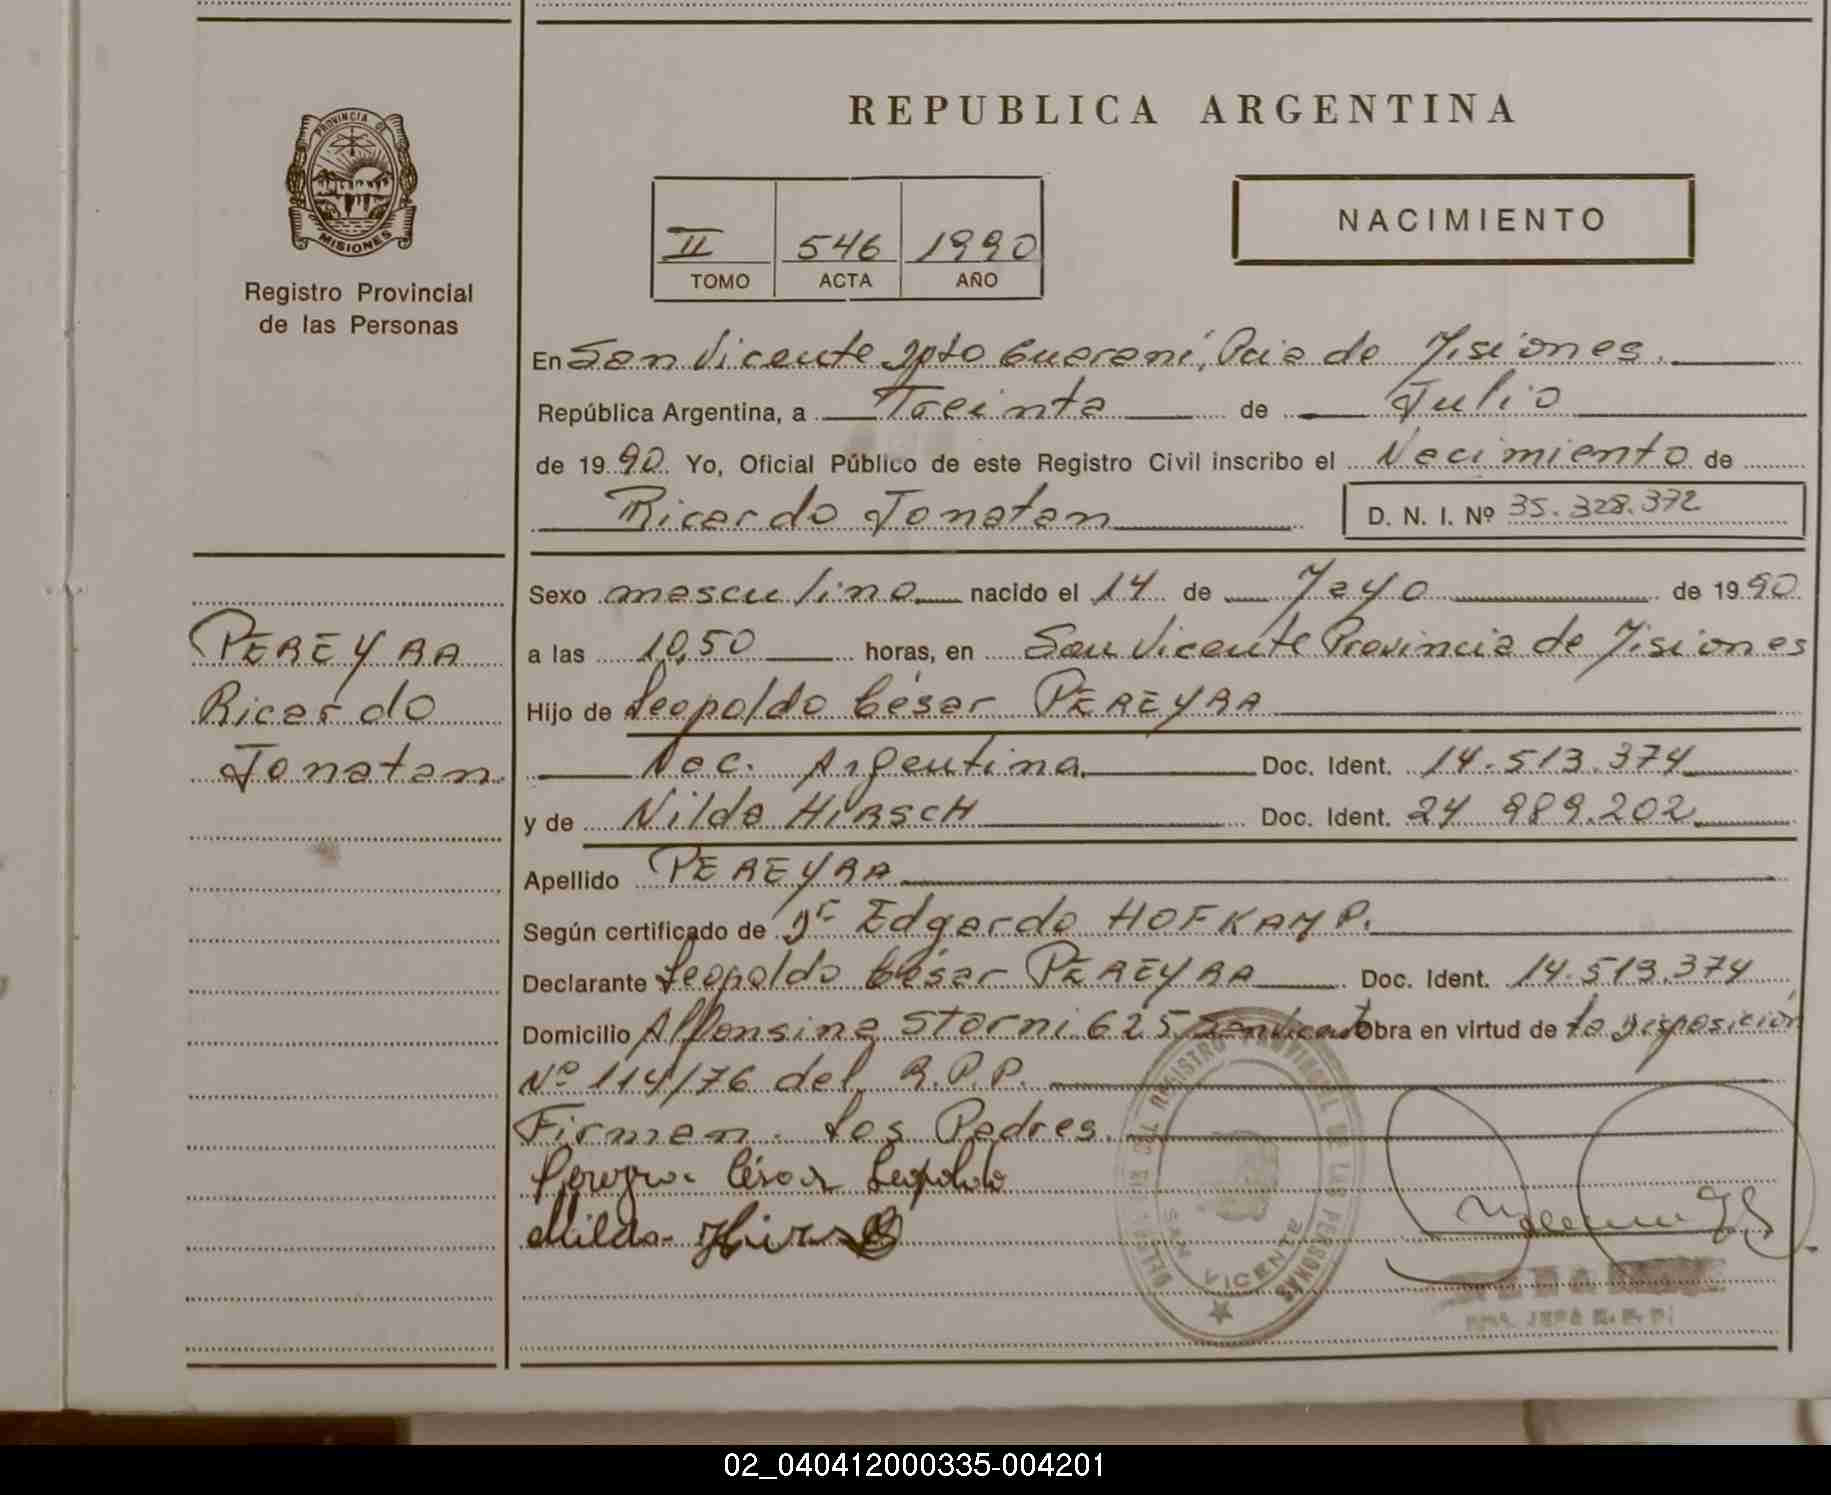 REPUBLICA ARGENTINA
PROVINCIA DE
MISIONES
Registro Provincial
de las Personas
II 546 1990
TOMO ACTA AÑO
NACIMIENTO
En San Vicente Dpto Guaraní, Pcia de Misiones.
República Argentina, a Treinta de Julio
de 1990. Yo, Oficial Público de este Registro Civil inscribo el Nacimiento de
Ricardo Jonatan
D. N. I. Nº 35.328.372
PEREYRA
Ricardo
Jonatan
Sexo masculino nacido el 14 de Mayo de 1990
a las 10,50 horas, en San Vicente Provincia de Misiones
Hijo de Leopoldo César PEREYRA
Nac. Argentina Doc. Ident. 14.513.374
y de Nilda HIRSCH Doc. Ident. 24.989.202
Apellido PEREYRA
Según certificado de Dr Edgardo HOFKAMP.
Declarante Leopoldo César PEREYRA Doc. Ident. 14.513.374
Domicilio Alfonsina Storni 625 San Vicente Obra en virtud de la Disposición
Nº 114/76 del R.P.P.
Firman Los Padres.
Pereyra César Leopoldo
Nilda Hirsch
REGISTRO PROVINCIAL DE LAS PERSONAS
SAN VICENTE
JEFA R. P. P.
02_040412000335-004201